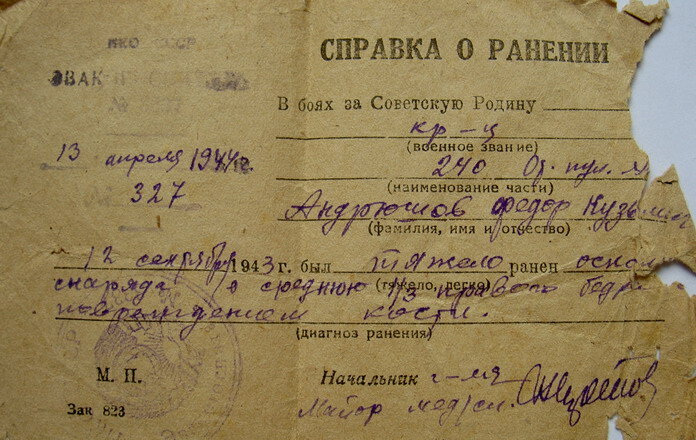 НКО СССР
ЭВАК
№
13 апреля 1944 г.
327
СПРАВКА О РАНЕНИИ
В боях за Советскую Родину
кр-ц
(военное звание)
240
(наименование части)
Андрюшов Федор Кузьми
(фамилия, имя и отчество)
12 сентября 1943 г. был тяжело ранен оскол
(тяжело, легко)
снаряда в среднюю 1/3 правого бедра
повреждением кости.
(диагноз ранения)
М. П.
Начальник г-ля
Зак 823
Майор мед/сл.